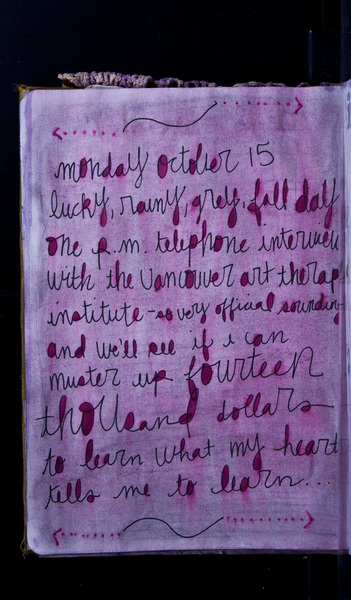 monday october 15
lucky, rainy, grey, fall day
one p.m. telephone interview
with the Vancouver art therap
institute - so very official soundin
and we'll see if i can
muster up fourteen
thousand dollars
to learn what my heart
tells me to learn...